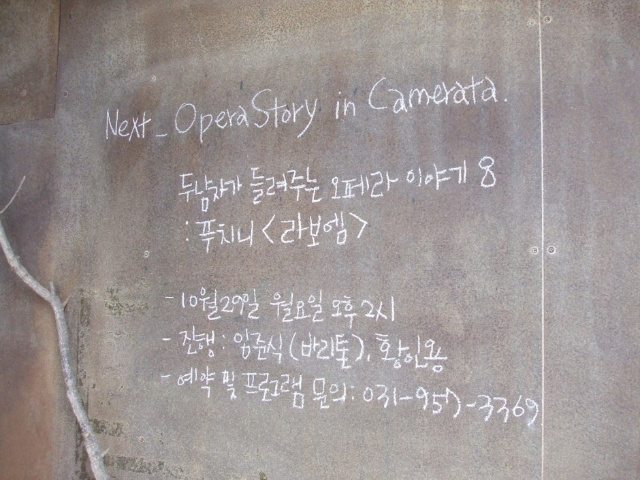 Next_Opera Story in Camerata.
두남자가 들려주는 오페라 이야기 8
: 푸치니 <라보엠>
- 10월29일 월요일 오후 2시
- 진행 : 임준식 (바리톤), 황인용
- 예약 및 프로그램 문의 : 031-957-3369